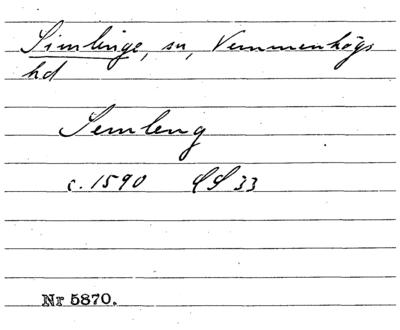 Simlinge, sn, Vemmenhögs
hd
Semleng
c. 1590 SS 33
Nr 5870.